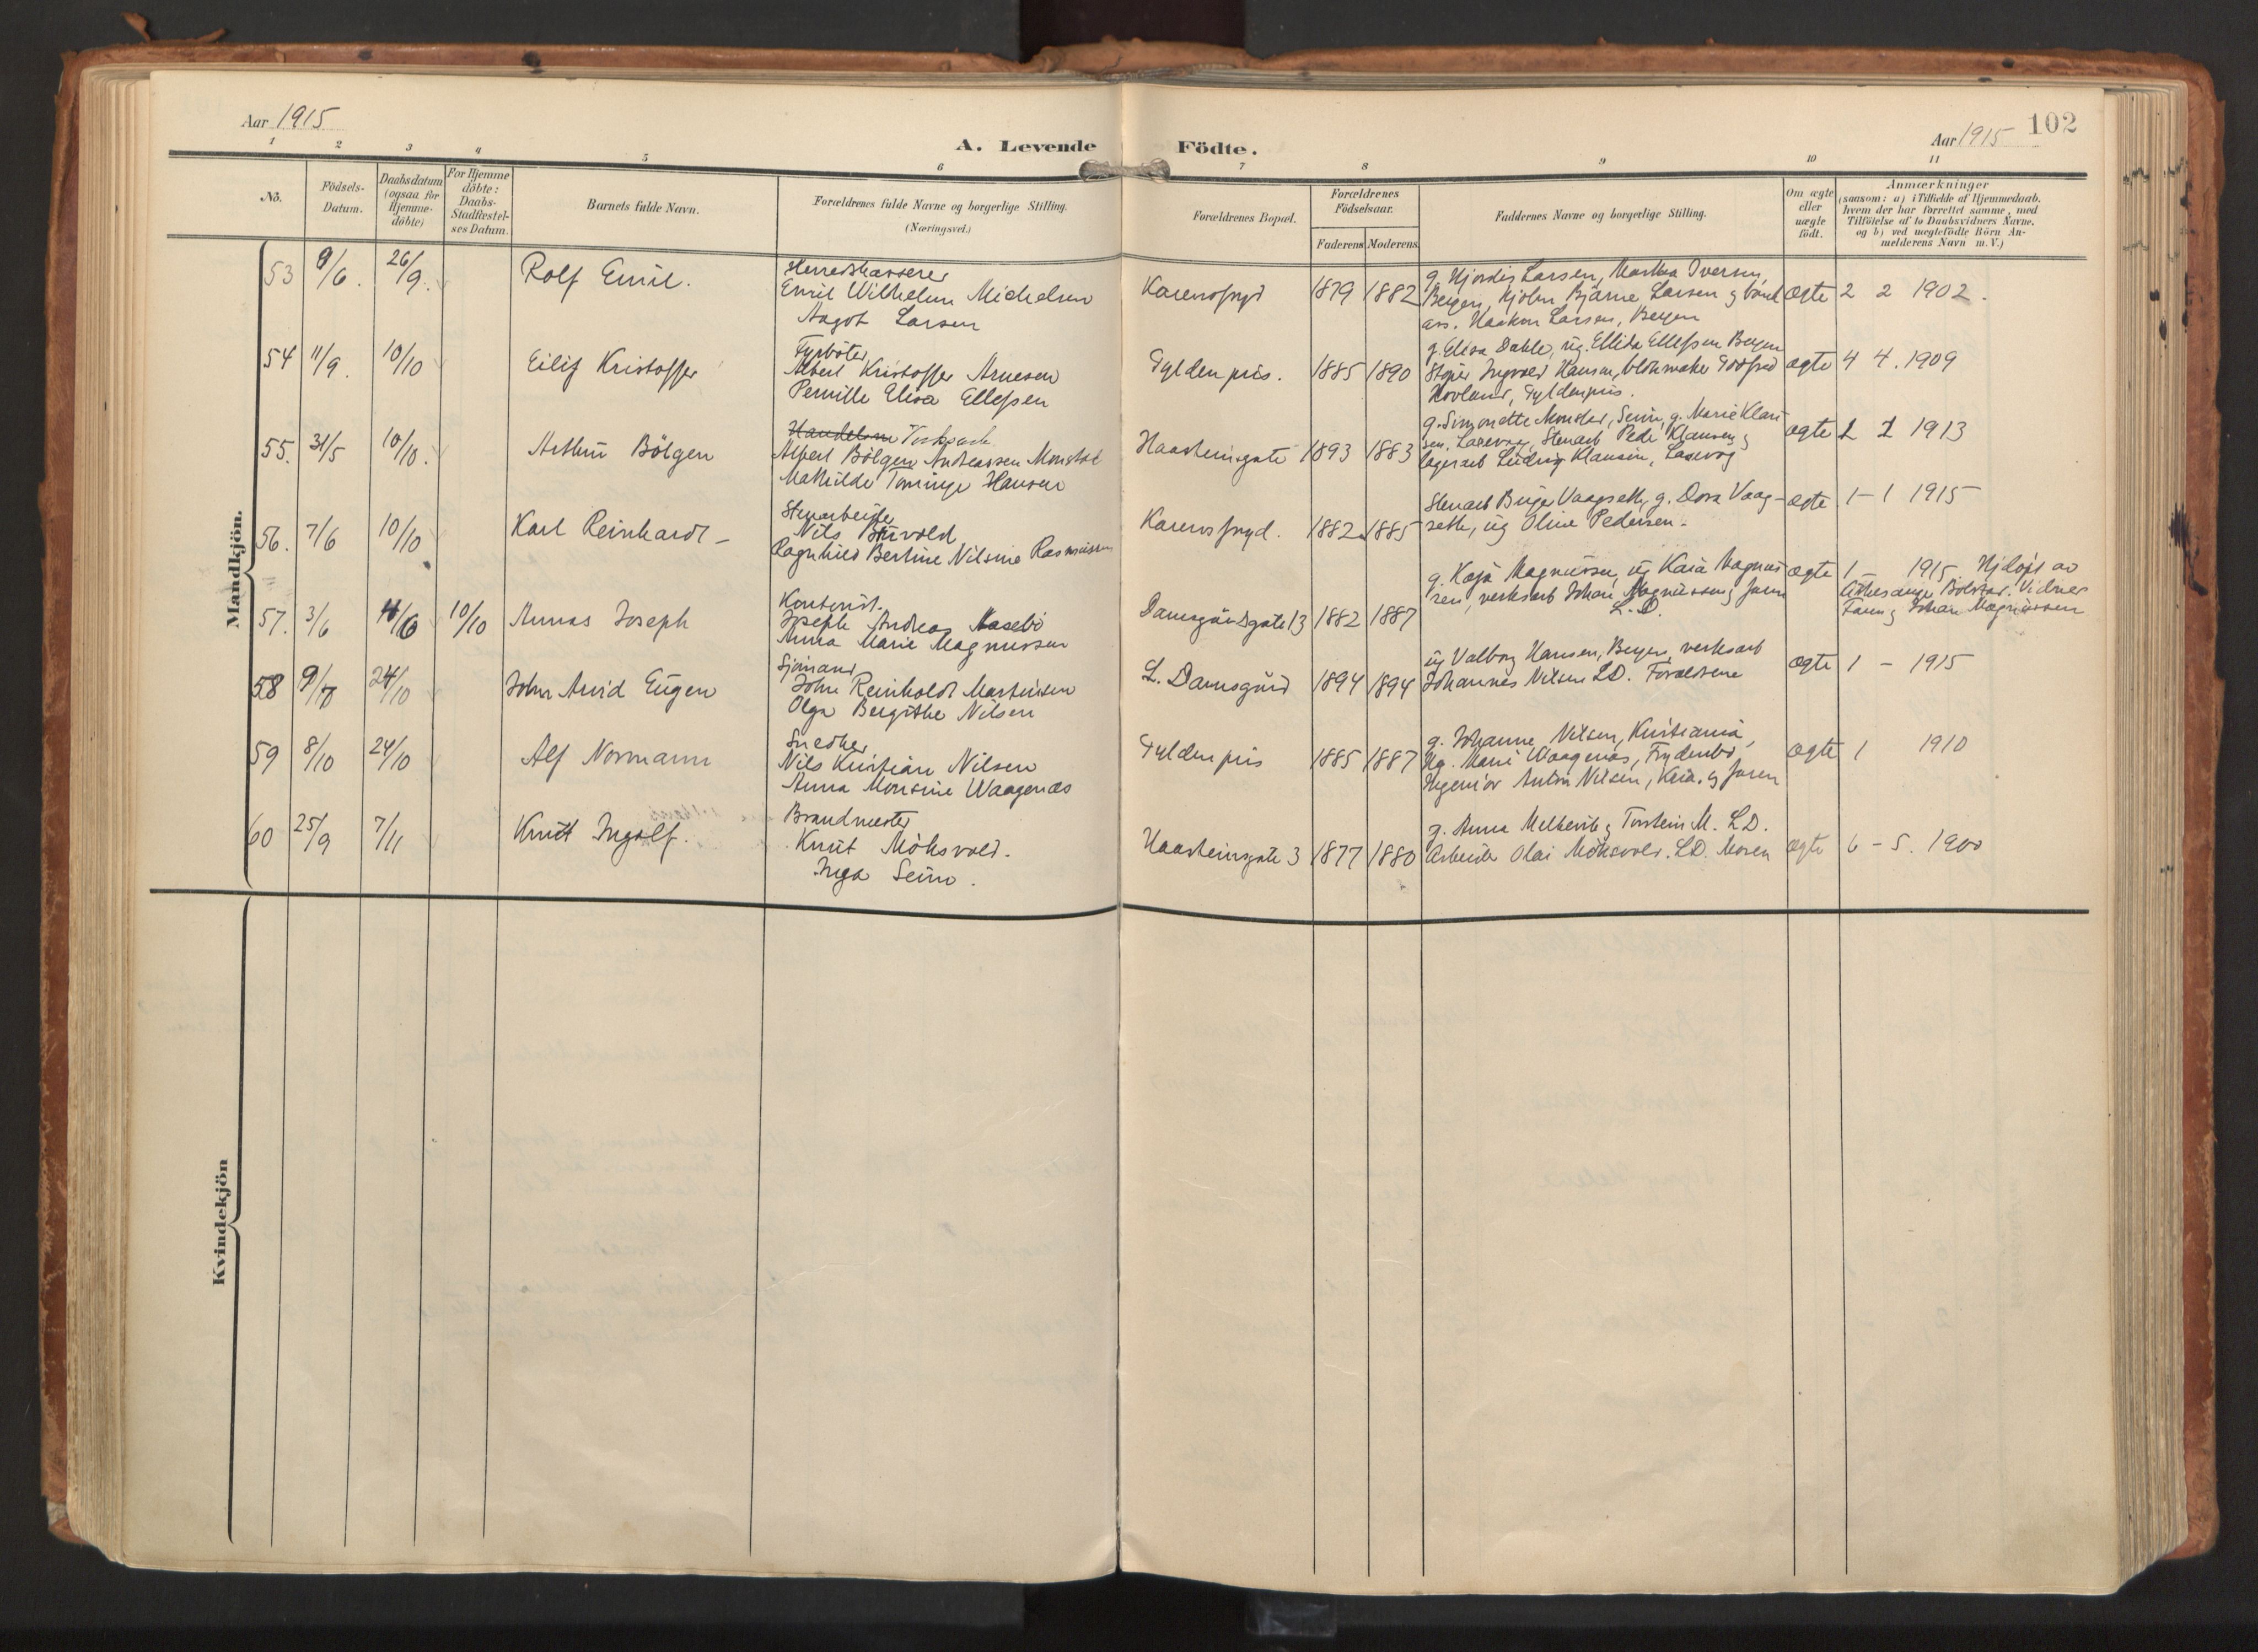 Aar 1915
102
Aar 1915
A. Levende Födte.
1 2 3 4 5 6 7 8 9 10 11
No.
Födsels-
Datum.
Daabsdatum
(ogsaa for
Hjemme-
döbte)
For Hjemme
döbte:
Daabs-
Stadfæstel-
ses Datum.
Barnets fulde Navn.
Forældrenes fulde Navne og borgerlige Stilling.
(Næringsvei.)
Forældrenes Bopæl.
Forældrenes
Födselsaar.
Faderens Moderens
Faddernes Navne og borgerlige Stilling.
Om ægte
eller
uægte
födt.
Anmærkninger
(saasom: a) i Tilfælde af Hjemmedaab,
hvem der har forrettet samme, med
Tilföielse af to Daabsvidners Navne,
og b) ved uægtefödte Börn An-
melderens Navn m. V.)
Mandkjön.
53 9/6. 26/9. Rolf Emil.
Herredskasserer
Emil Wilhelm Michelsen
Aagot Larsen
Karensfryd 1879 1882
g. Hjordis Larsen, Martha Iversen,
Bergen, Bjarne Larsen g bank
ass. Haakon Larsen, Bergen
ægte 2 2 1902.
54 11/9. 10/10 Eilif Kristoffer
Fyrböter
Albert Kristoffer Arnesen
Pernille Elisa Ellefsen
Gyldenpris. 1885 1890
g. Elisa Dahle, ug. Ellida Ellefsen Bergen
Ingvald Hansen, blokmaker Godfred
Hovland, Gyldenpris.
ægte 4 4. 1909
55. 31/5 10/10. Arthur Bölgen
Albert Bölgen Andreassen Monstad
Mathilde Hansen
Haasteinsgate 1893 1883
g. Simonette Monstad, g. Marie Klau
sen, Laxevaag, Stenarb Peder Klausen g
lagerarb Ludvig Klausen, Laxevag
ægte 1 1 1913
56. 7/6 10/10 Karl Reinhardt -
Stenarbeider
Nils
Ragnhild Bertine Nilsine Rasmussen
Karensfryd. 1882 1885
Stenarb Birger Vaagseth, g. Dora Vaag-
seth, ug Oline Pedersen -
ægte 1 - 1 1915
57. 3/6 10/10 Annas Joseph
Kontorist.
Joseph Andreas Aasebö
Anna Marie Magnussen
Damsgårdsgate 13 1882 1887
g. Kaja Magnussen, ug Kaia Magnus
sen, verksarb Johan Magnussen g faren
L. D.
ægte 1 - 1915 Hjdöpt av
Vidner
Faren g Johan Magnussen
58 24/10 John Arvid Eugen
Sjömand
John Reinholdt Martinsen
Olga Bergithe Nilsen
L. Damsgård 1894 1894
ug Valborg Hansen, Bergen, verksarb
Johannes Nilsen LD. Forældrene
ægte 1 - 1915
59 8/10 24/10 Alf Normann
Snedker
Nils Kristian Nilsen
Anna Monsine Waagenæs
Gyldenpris 1885 1887
g. Johanne Nilsen, Kristiania,
Ug. Marie Waagenæs, Frydenbö
Ingeniör Anton Nilsen, Kria. g faren
ægte 1 1910
60 25/9 7/11 Knut Ingolf.
Brandmester
Knut Möksvold.
Inga Seim.
Haasteinsgate 3 1877 1880
g. Anna Melkevik g Torstein M. L.D.
Arbeider Olai Möksvold. LD. Moren
ægte 6 - 5. 1900
Kvindekjön